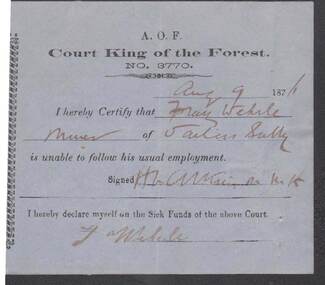 A. O. F.
Court King of the Forest.
NO. 3770.
Aug 9 1876
I hereby Certify that Franz Wehrle
Miner of Sailors Gully
is unable to follow his usual employment.
Signed
I hereby declare myself on the Sick Funds of the above Court.
F Wehrle